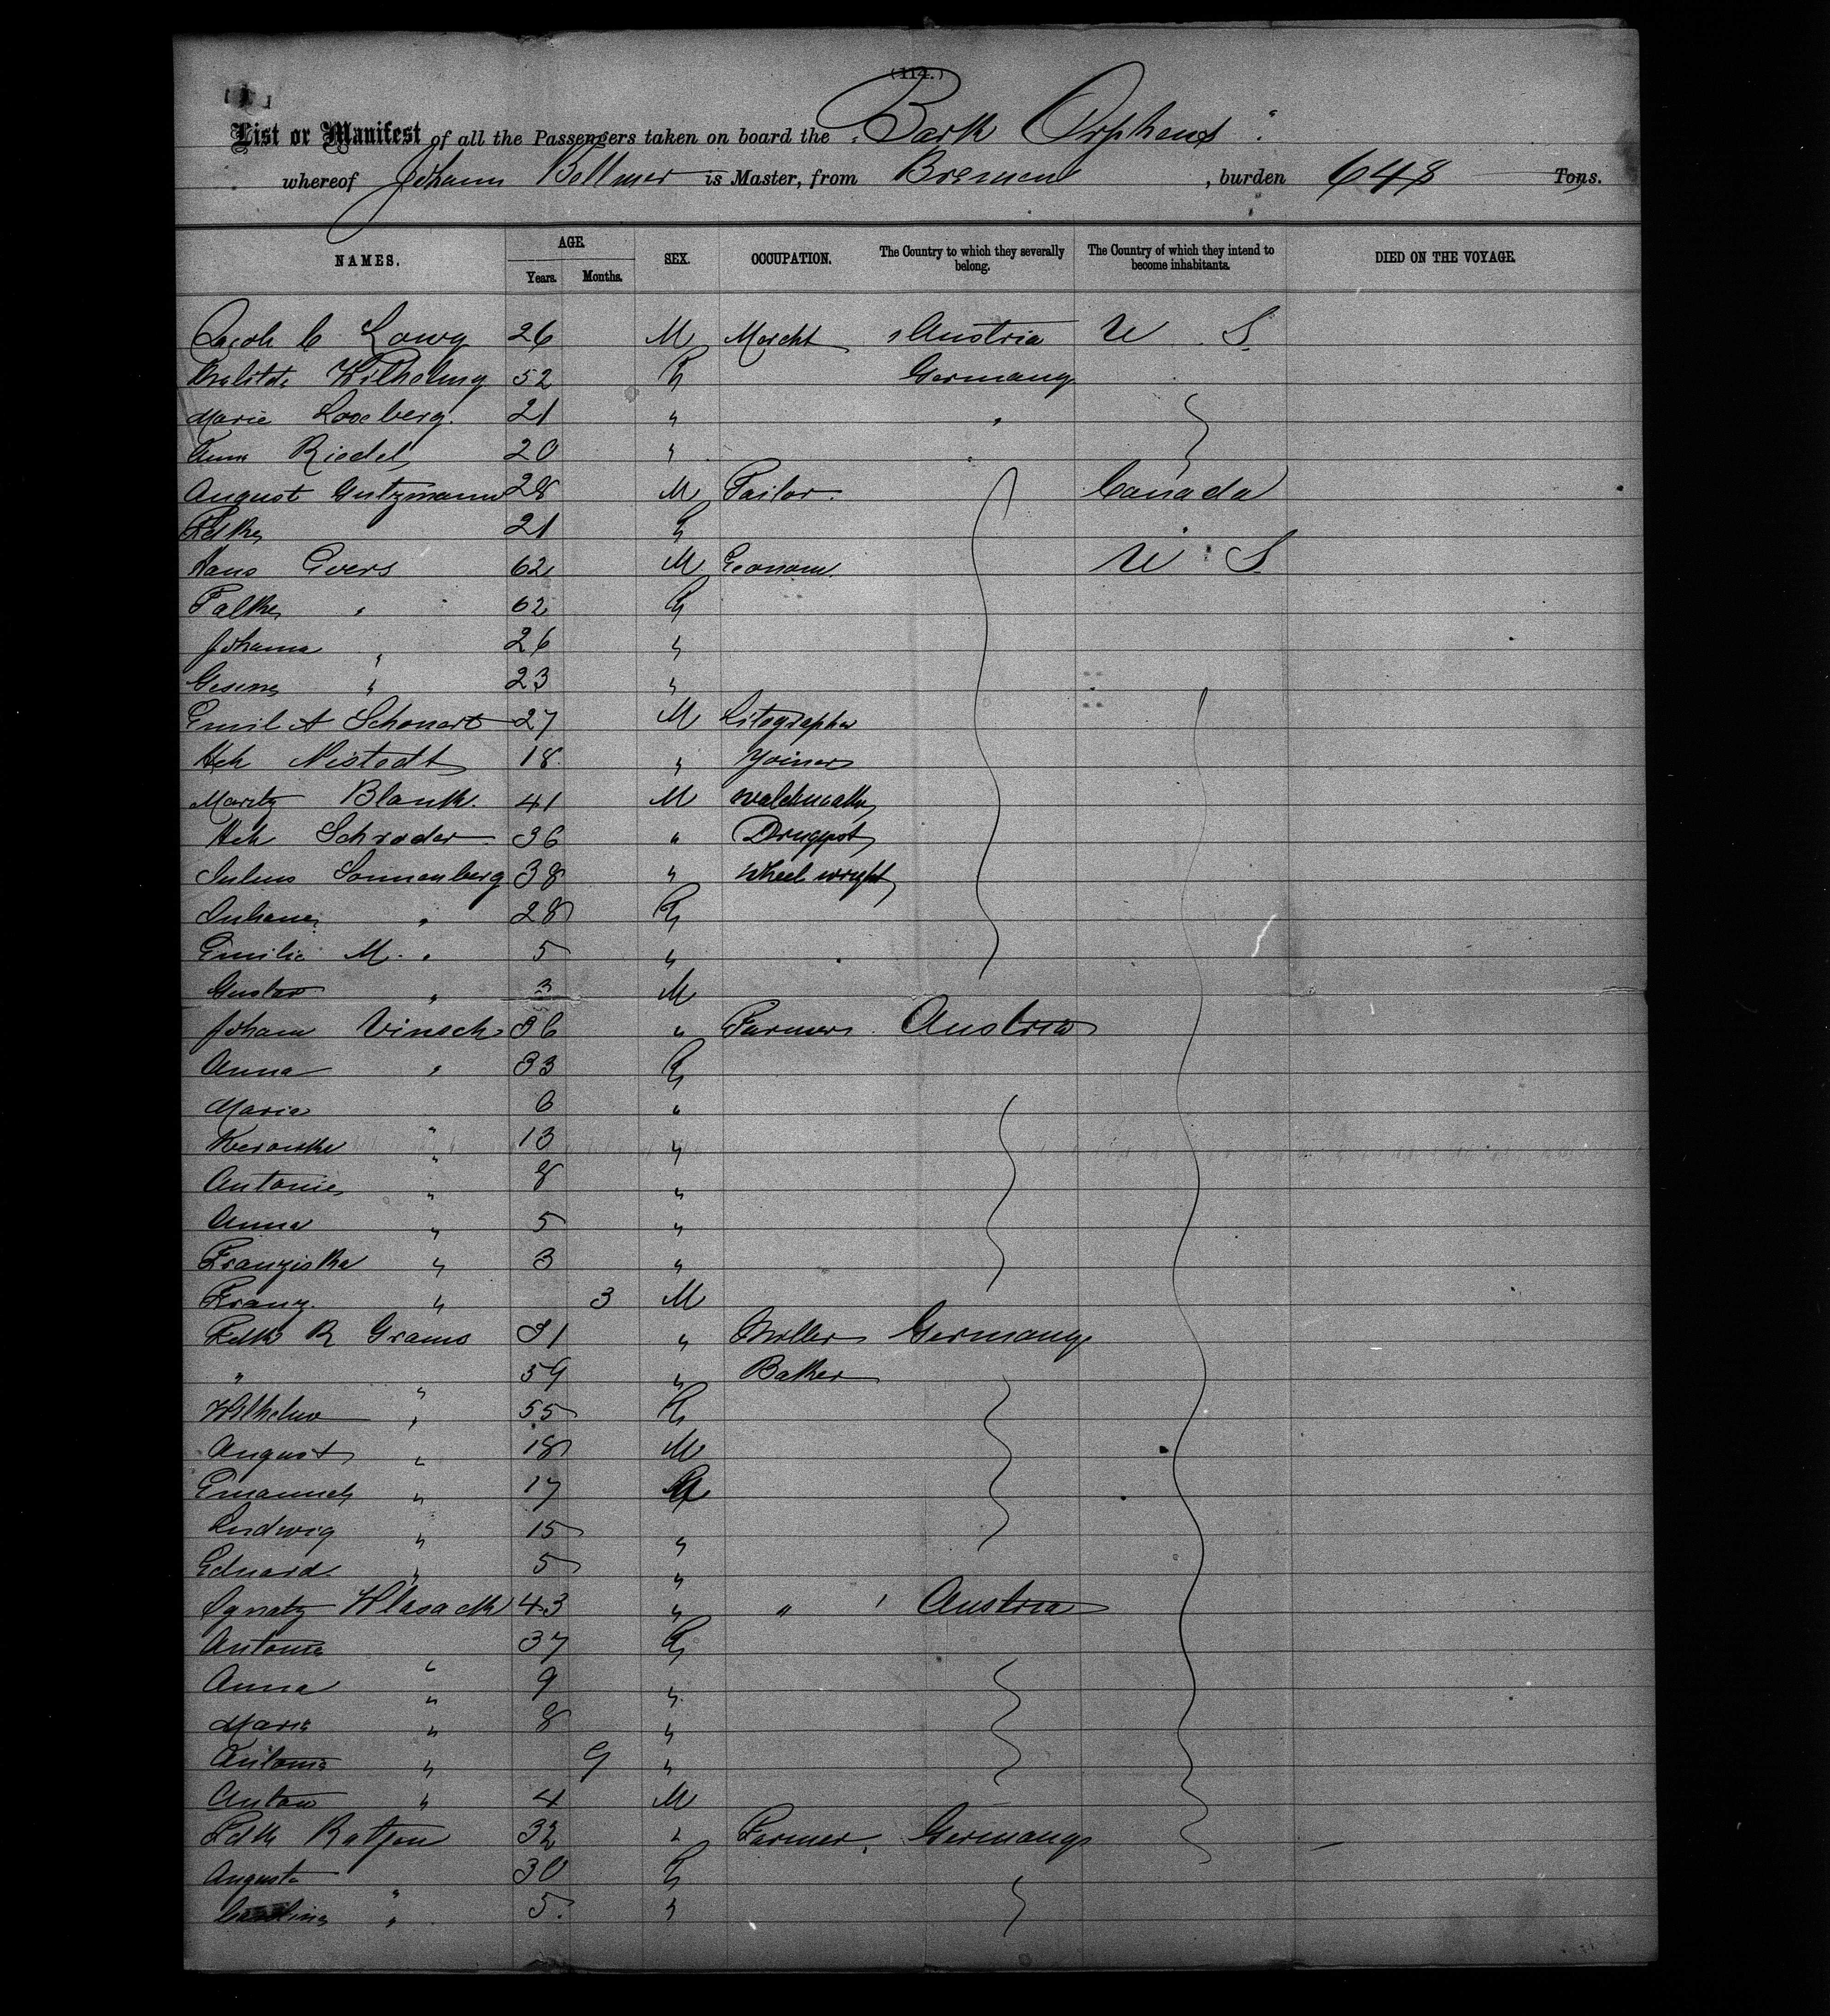 (114.)
List or Manifest of all the Passengers taken on board the "Bark Orpheus".
whereof Johann Bollmer is Master, from Bremen, burden 648 Tons.
NAMES. AGE. SEX. OCCUPATION. The Country to which they severally belong. The Country of which they intend to become inhabitants. DIED ON THE VOYAGE.
Years. Months.
Jacob C Lowy 26 M Mercht Austria U S
52 Germany
Marie 21 "
Anna Riedel 20 "
August Gutzmann 28 M Tailor Canada
21
Hans Evers 62 M Econom. U S
62
Johanna " 26 "
Gesine " 23 "
Emil A Schonart 27 M Litographer
Hch Nistedt 18 " Yoiner
Moritz Blank 41 M
Hch Schroder 36 " Druggist
Julius Sonnenberg 38 " Wheelwright
" 28
Emilie M. " 5 "
Gustav " 3 M
Johann Vinsch 36 " Farmer Austria
Anna " 33
Maria " 6 "
" 13 "
Antonie " 8 "
Anna " 5 "
Franziska " 3 "
Franz " 3 M
R Grams 31 " Miller Germany
" " 59 " Baker
Wilhelmine " 55
August " 18 M
Emanuel " 17 M
Ludwig " 15 "
Eduard " 5 "
Ignatz Wlasack 43 " " Austria
Antonia " 37
Anna " 9 "
Maria " 8 "
Antonia " 9 "
Anton " 4 M
32 " Farmer Germany
Augusta " 30
" 5 "